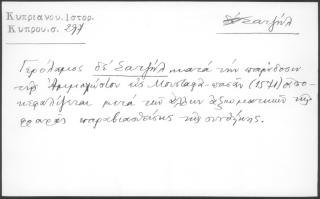 Κυπριανού. Ιστορ.
Κυπρου. σ. 297
δὲ Σατζήλ
Γερόλαμος δὲ Σατζήλ κατά τήν παράδοσιν
τῆς Ἀμμοχώστου εἰς Μουσταφᾶ-πασᾶν (1571) ἀπο-
κεφαλίζεται μετά τῶν ἄλλων ἀξιωματικῶν τῆς
φρουρᾶς παραβιασθείσης τῆς συνθήκης.